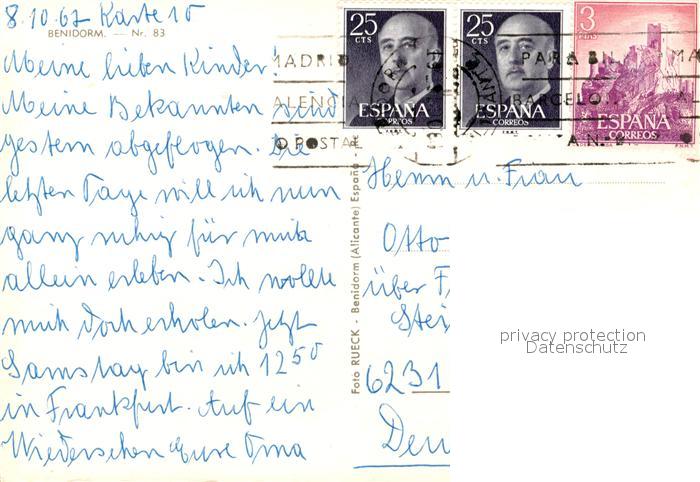 8.10.67 Karte 10
BENIDORM. — Nr. 83
Meine lieben Kinder!
Meine Bekannten sind
gestern abgeflogen. Die
letzten Tage will ich nun
ganz ruhig für mich
allein erleben. Ich wollte
mich doch erholen. Jetzt
Samstag bin ich 12 50
in Frankfurt. Auf ein
Wiedersehen Eure Oma
Foto RUECK - Benidorm (Alicante) España
25 CTS
ESPAÑA
CORREOS
25 CTS
ESPAÑA
CORREOS
3 PTAS
ESPAÑA
CORREOS
MADRID
PARA
POSTAL
Herrn u. Frau
Otto
über F
Stei
6231
Deu
privacy protection
Datenschutz